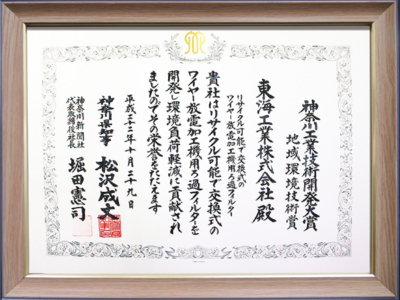 神奈川工業技術開発大賞
地域環境技術賞
東海工業株式会社 殿
リサイクル可能で交換式の
ワイヤー放電加工機用ろ過フィルター
貴社はリサイクル可能で交換式の
ワイヤー放電加工機用ろ過フィルターを
開発し環境負荷軽減に貢献され
ましたのでその栄誉をたたえます
平成二十二年十月二十九日
神奈川県知事 松沢成文
神奈川新聞社
代表取締役社長 堀田憲司